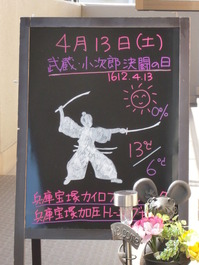 4月13日(土)
武蔵・小次郎決闘の日
1612.4.13
0%
13℃/6℃
兵庫宝塚カイロプ
兵庫宝塚加圧トレーニング